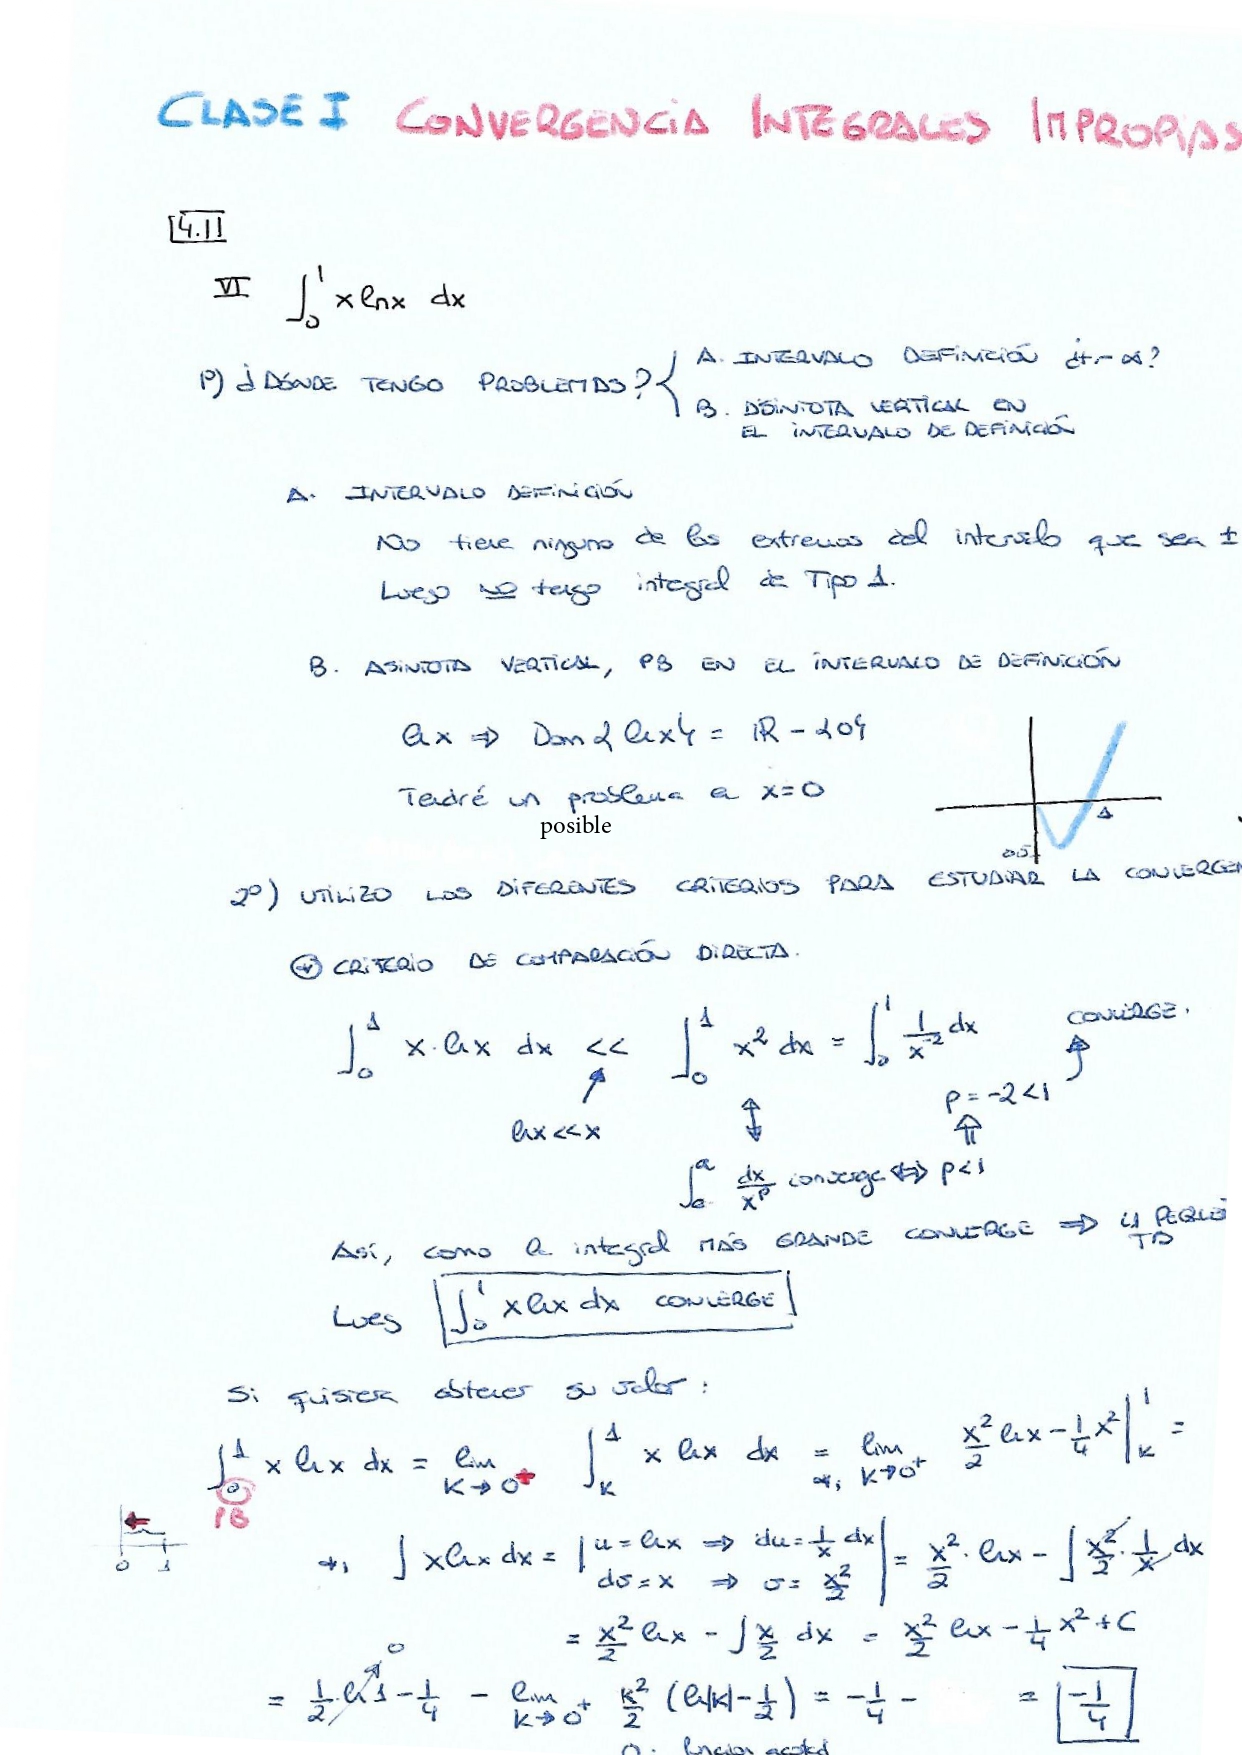 CLASE I CONVERGENCIA INTEGRALES IMPROPIAS
4.11
VI ∫₀¹ x ln x dx
1º) ¿DÓNDE TENGO PROBLEMAS? { A. INTERVALO DEFINICIÓN ¿+- ∞?
B. ASÍNTOTA VERTICAL EN
EL INTERVALO DE DEFINICIÓN
A. INTERVALO DEFINICIÓN
No tiene ninguno de los extremos del intervalo que sea ±
Luego NO tengo integral de Tipo 1.
B. ASÍNTOTA VERTICAL, PB EN EL INTERVALO DE DEFINICIÓN
ln x ⇒ Dom{ln x} = ℝ - {0}
Tendré un problema en x=0
posible
1
0.5
2º) UTILIZO LOS DIFERENTES CRITERIOS PARA ESTUDIAR LA CONVERGEN
CRITERIO DE COMPARACIÓN DIRECTA.
∫₀¹ x·ln x dx << ∫₀¹ x² dx = ∫₀¹ 1/x⁻² dx CONVERGE.
ln x << x p = -2 < 1
∫₀ᵃ dx/xᵖ converge ⇔ p<1
Así, como la integral MÁS GRANDE CONVERGE ⇒ LA PEQUEÑ
TB
Luego ∫₀¹ x ln x dx CONVERGE
Si quisiera obtener su valor:
∫₀¹ x ln x dx = lim K→0⁺ ∫ₖ¹ x ln x dx = *₁ lim K→0⁺ x²/2 ln x - 1/4 x² |ₖ¹ =
PB
0 1
*₁ ∫ x ln x dx = | u = ln x ⇒ du = 1/x dx
dv = x ⇒ v = x²/2 | = x²/2 · ln x - ∫ x²/2 · 1/x dx
= x²/2 ln x - ∫ x/2 dx = x²/2 ln x - 1/4 x² + C
= 1/2 · ln 1 - 1/4 - lim K→0⁺ k²/2 (ln|k| - 1/2) = -1/4 - = -1/4
0
0 · función acotad